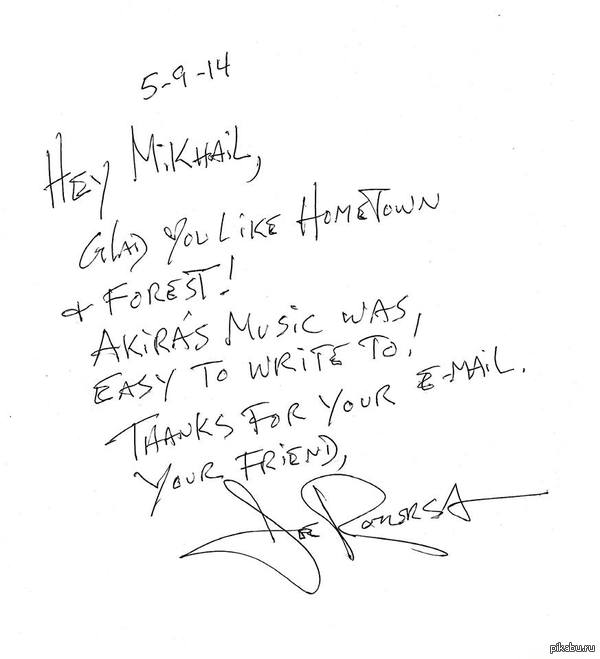 5-9-14
HEY MIKHAIL,
GLAD YOU LIKE HOMETOWN
+ FOREST!
AKIRA'S MUSIC WAS
EASY TO WRITE TO!
THANKS FOR YOUR E-MAIL.
YOUR FRIEND,
JOE ROMERSA
pikabu.ru